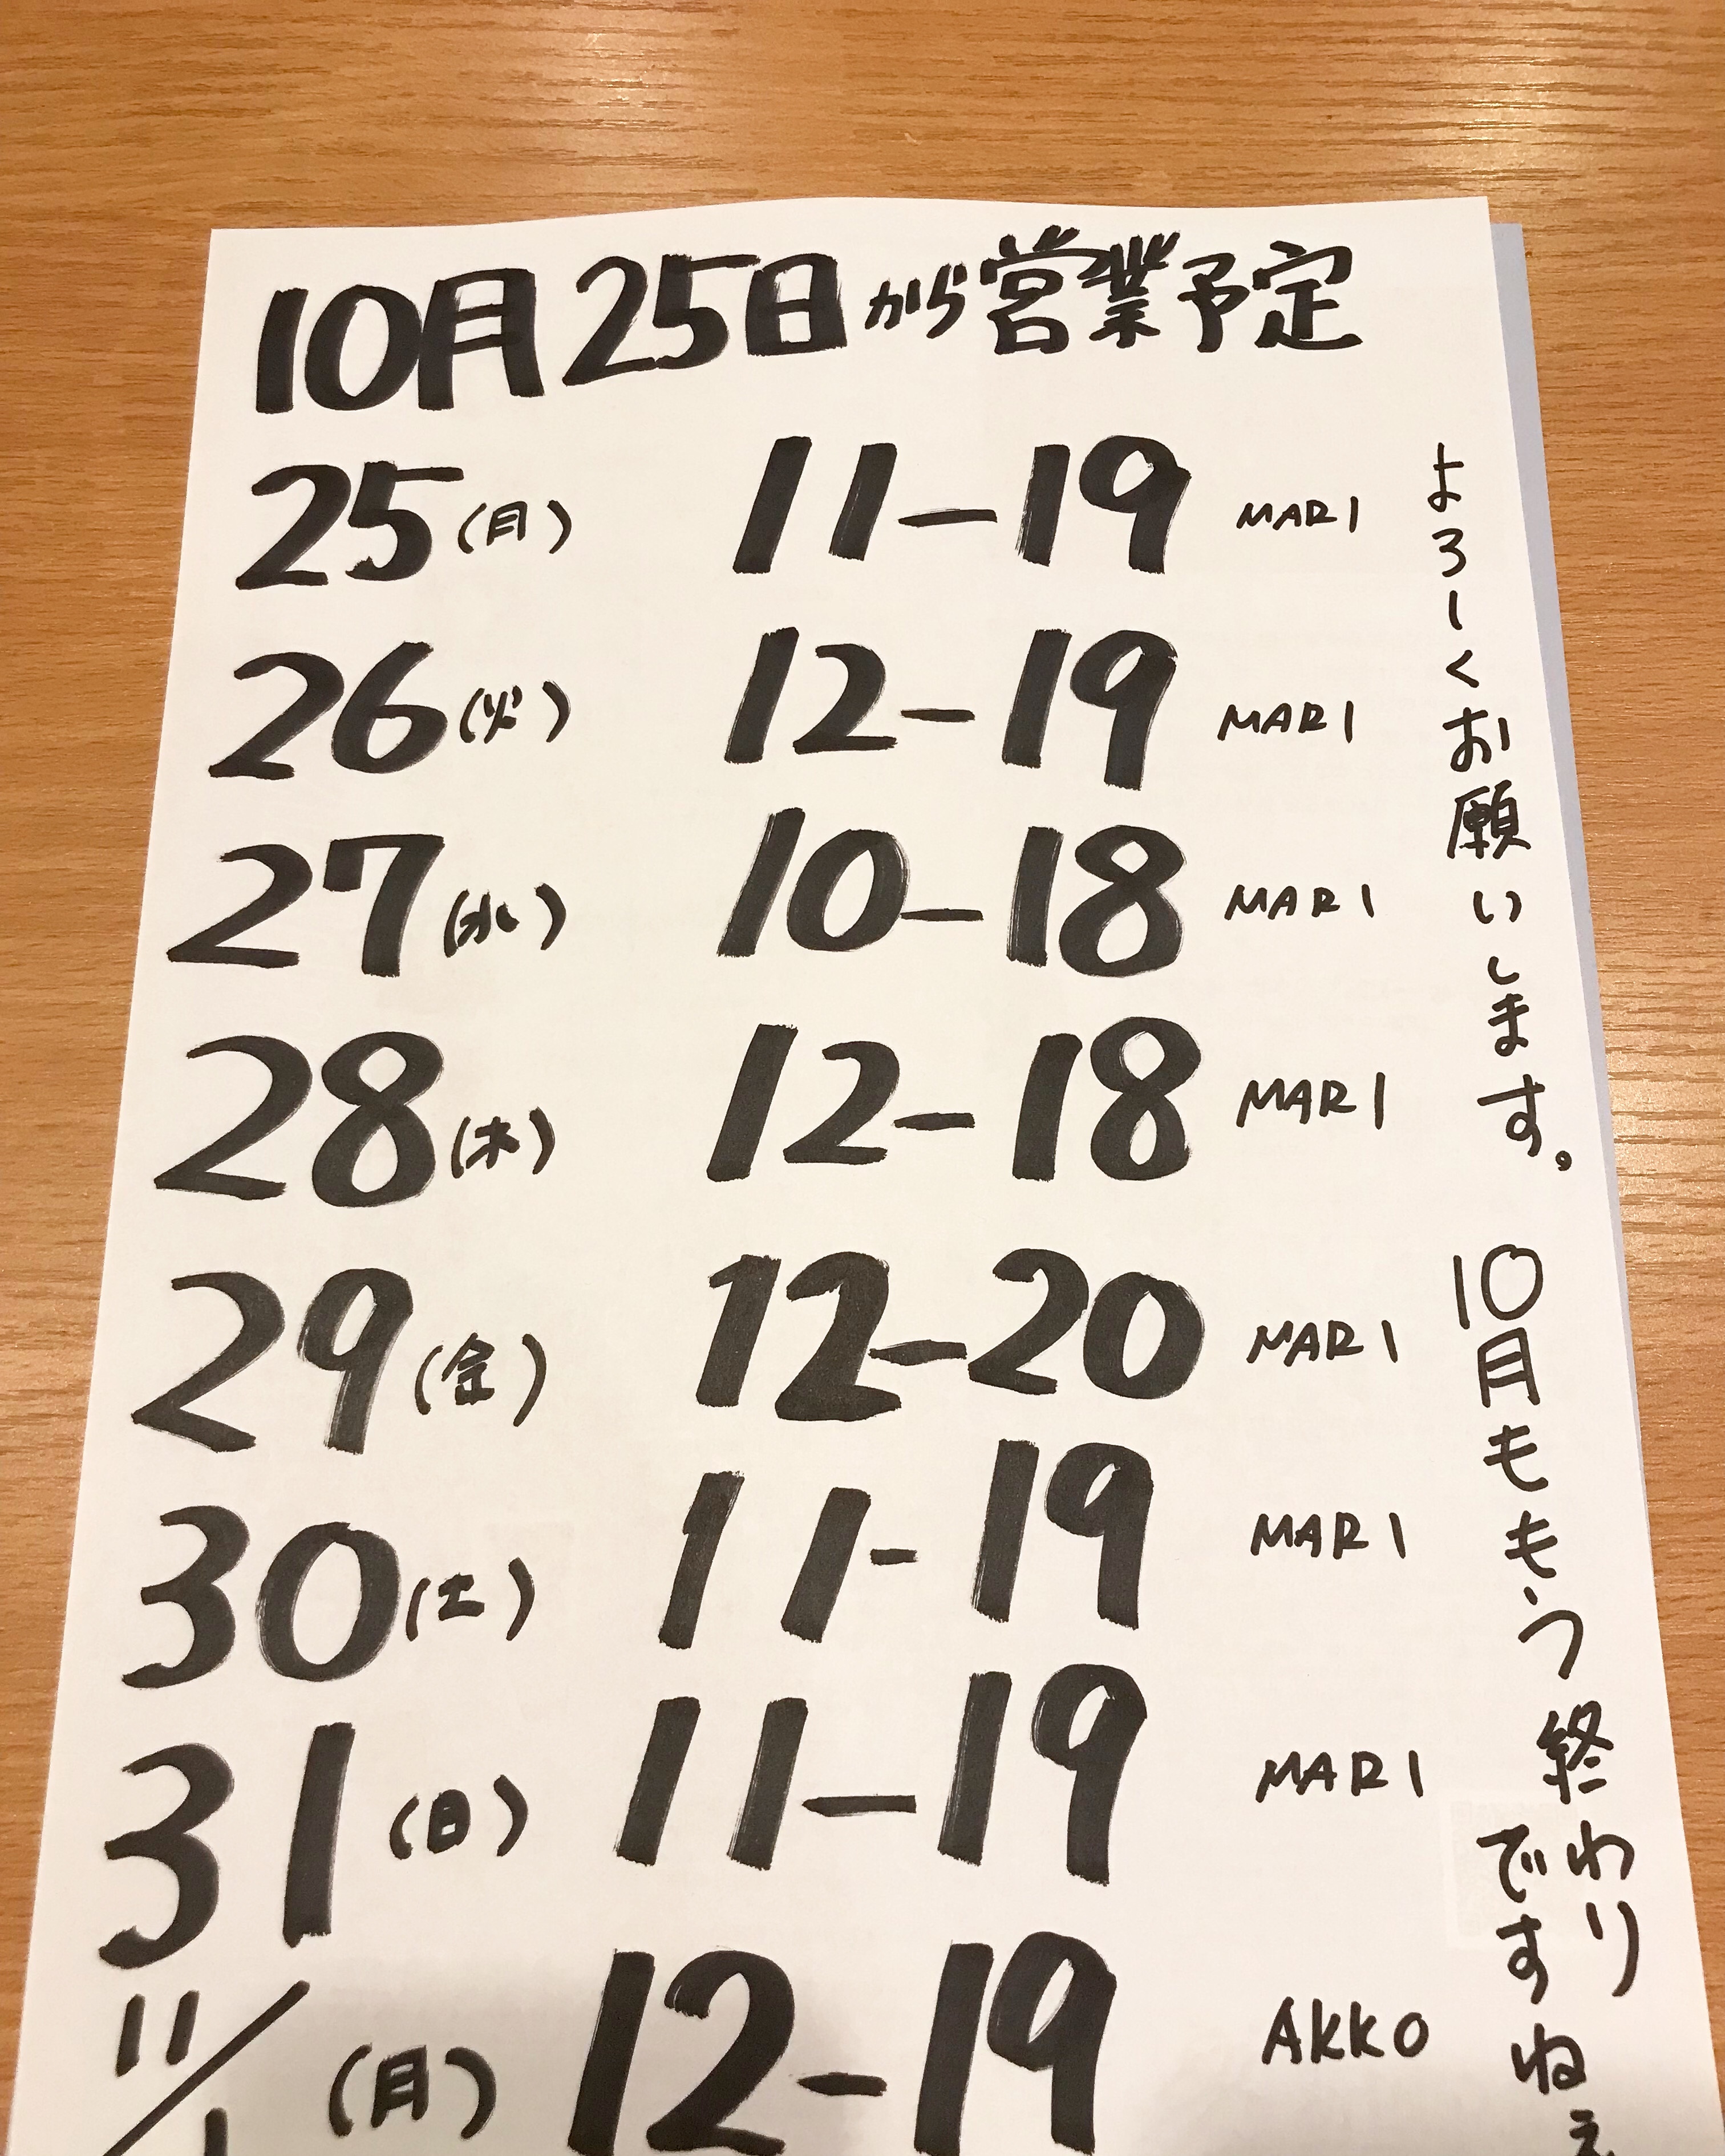 10月25日から営業予定
25(月) 11-19 MARI
26(火) 12-19 MARI
27(水) 10-18 MARI
28(木) 12-18 MARI
29(金) 12-20 MARI
30(土) 11-19 MARI
31(日) 11-19 MARI
11/1(月) 12-19 AKKO
よろしくお願いします。
10月ももう終わり
ですねえ